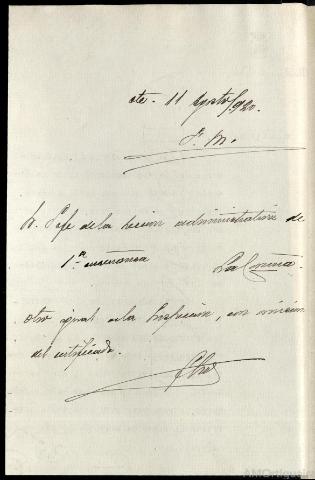 ote. 11 Agosto/920.
F. M.
Sr. Jefe de la Sección administrativa de
1ª enseñanza
La Coruña.
Otro igual a la Inspección, con
del certificado.
AMOrtigueira